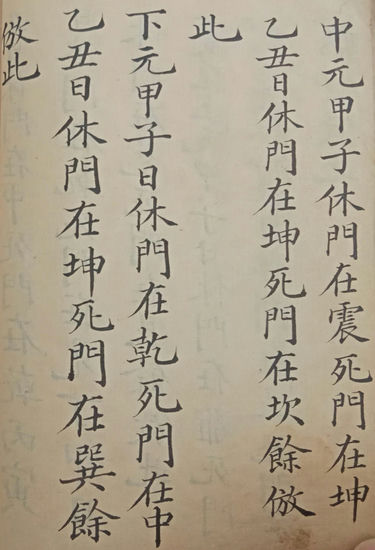 中元甲子休門在震死門在坤
乙丑日休門在坤死門在坎餘倣
此
下元甲子日休門在乾死門在中
乙丑日休門在坤死門在巽餘
倣此